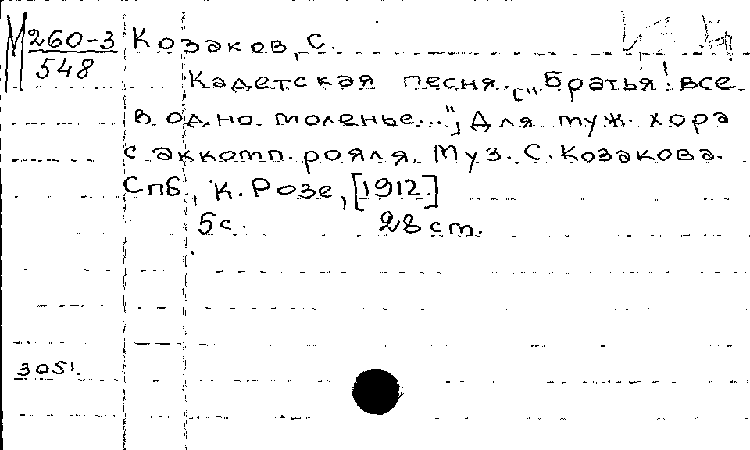 М 260-3 Козаков, С.
548
Кадетская песня. („Братья! все
в одно моленье...“) Для муж. хора
с аккомп. рояля. Муз. С. Козакова.
Спб., К. Розе, [1912.]
5 с. 28 см.
3051.